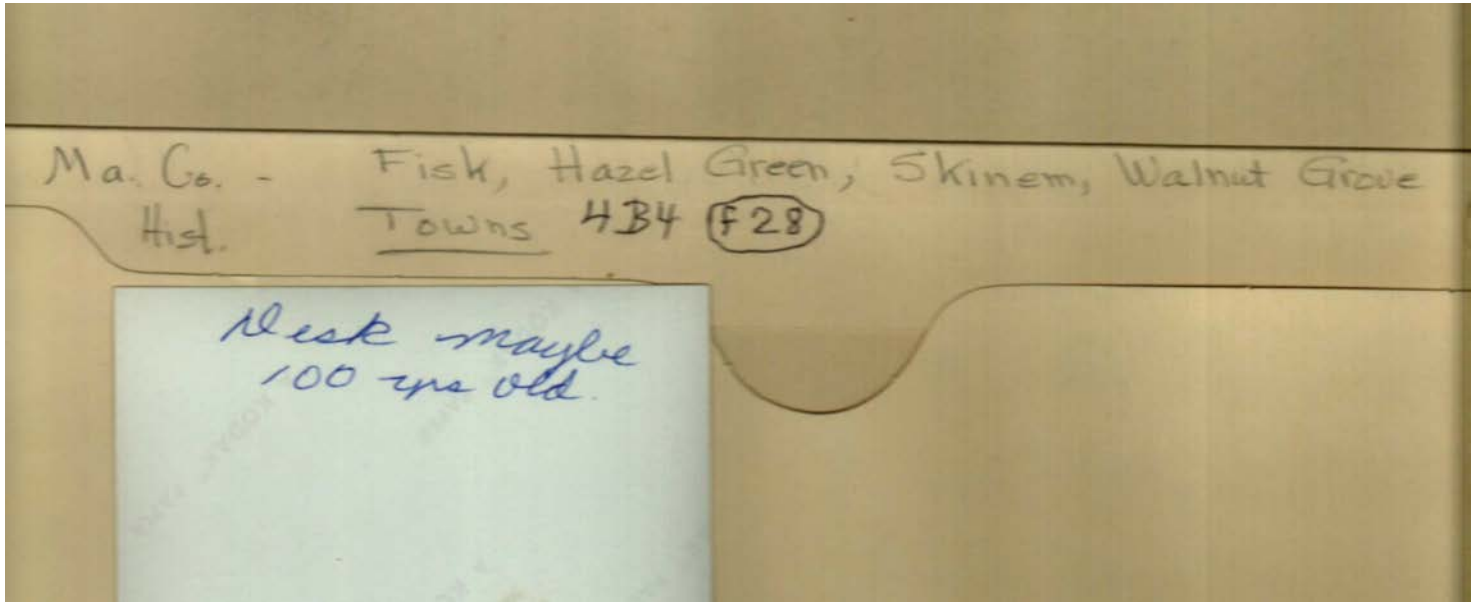 Ma. Co. - Fisk, Hazel Green, Skinem, Walnut Grove
Hist. Towns 4B4 f28
Desk maybe
100 yrs old.